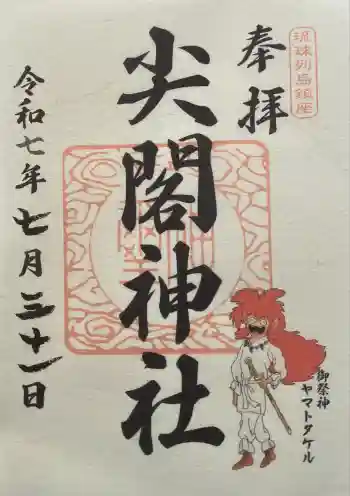 琉球列島鎮座
奉拝
尖閣神社
令和七年七月三十一日
御祭神
ヤマトタケル